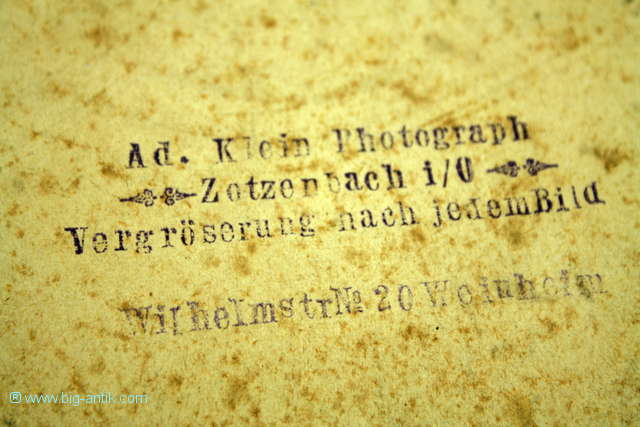 Ad. Klein Photograph
Zotzenbach i/O
Vergröserung nach jedem Bild
Wilhelmstr № 20 Weinheim
® www.big-antik.com